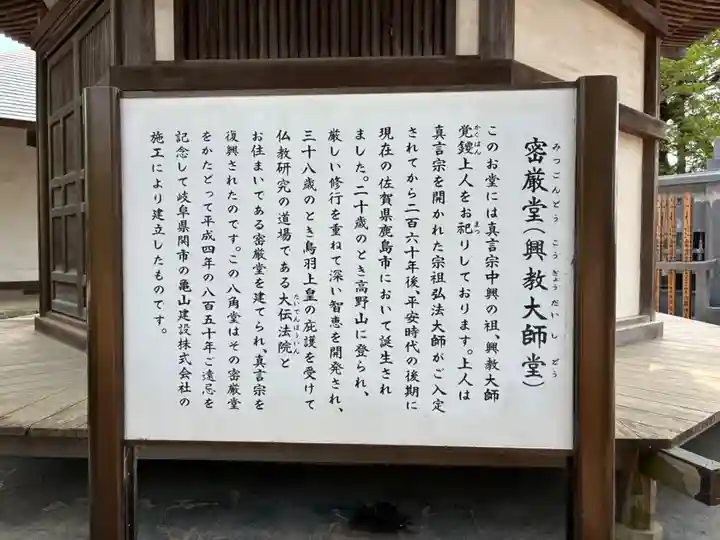 密厳堂(興教大師堂)
みつごんどう こうぎょうだいしどう
このお堂には真言宗中興の祖、興教大師
覚鑁上人をお祀りしております。上人は
かくばん まつ
真言宗を開かれた宗祖弘法大師がご入定
されてから二百六十年後、平安時代の後期に
現在の佐賀県鹿島市において誕生され
ました。二十歳のとき高野山に登られ、
厳しい修行を重ねて深い智恵を開発され、
三十八歳のとき鳥羽上皇の庇護を受けて
仏教研究の道場である大伝法院と
たいでんぽういん
お住まいである密厳堂を建てられ、真言宗を
復興されたのです。この八角堂はその密厳堂
をかたどって平成四年の八百五十年ご遠忌を
記念して岐阜県関市の亀山建設株式会社の
施工により建立したものです。